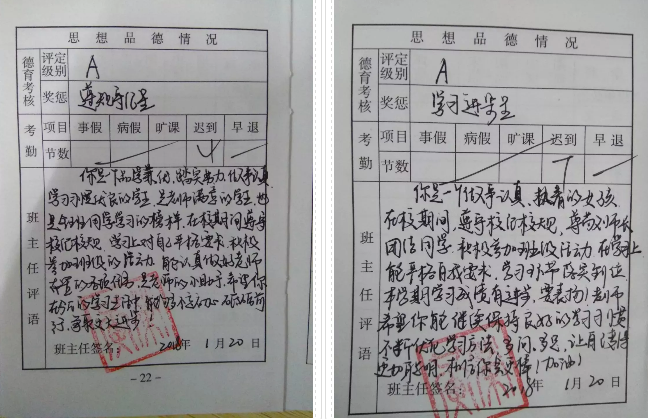 思想品德情况
德育考核
评定级别
A
奖惩
遵规守纪星
考勤
项目 事假 病假 旷课 迟到 早退
节数 4
班主任评语
你是个品学兼优、踏实努力、做事认真
学习习惯优良的学生,是老师满意的学生,也
是任何同学学习的榜样。在校期间遵守
校纪校规,学习上对自己严格要求,积极
参加班级的活动,能认真做好老师
布置的各项任务,是老师的小助手,希望你
在今后的学习生活中,能够
班主任签名:
2018年1月20日
- 22 -
思想品德情况
德育考核
评定级别
A
奖惩
学习进步星
考勤
项目 事假 病假 旷课 迟到 早退
节数
班主任评语
你是一个做事认真、执着的女孩
在校期间,遵守校纪校规,尊敬师长
团结同学,积极参加班级活动,在学习上
能严格自我要求,学习环节落实到位
本学期学习成绩有进步,需表扬!老师
希望你能继续保持良好的学习习惯
不断优化学习方法,多问、多思,让自己
相信你会更棒(加油)
班主任签名:
2018年1月20日